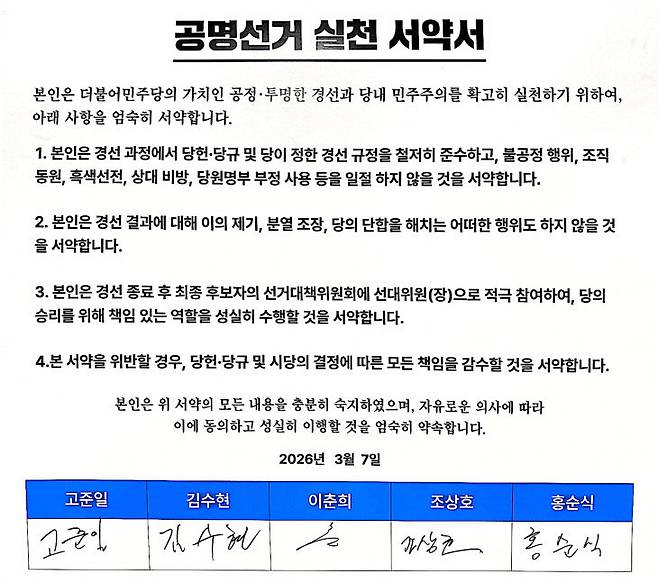 공명선거 실천 서약서
본인은 더불어민주당의 가치인 공정·투명한 경선과 당내 민주주의를 확고히 실천하기 위하여,
아래 사항을 엄숙히 서약합니다.
1. 본인은 경선 과정에서 당헌·당규 및 당이 정한 경선 규정을 철저히 준수하고, 불공정 행위, 조직
동원, 흑색선전, 상대 비방, 당원명부 부정 사용 등을 일절 하지 않을 것을 서약합니다.
2. 본인은 경선 결과에 대해 이의 제기, 분열 조장, 당의 단합을 해치는 어떠한 행위도 하지 않을 것
을 서약합니다.
3. 본인은 경선 종료 후 최종 후보자의 선거대책위원회에 선대위원(장)으로 적극 참여하여, 당의
승리를 위해 책임 있는 역할을 성실히 수행할 것을 서약합니다.
4.본 서약을 위반할 경우, 당헌·당규 및 시당의 결정에 따른 모든 책임을 감수할 것을 서약합니다.
본인은 위 서약의 모든 내용을 충분히 숙지하였으며, 자유로운 의사에 따라
이에 동의하고 성실히 이행할 것을 엄숙히 약속합니다.
2026년 3월 7일
고준일 김수현 이춘희 조상호 홍순식
고준일 김수현 조상호 홍순식